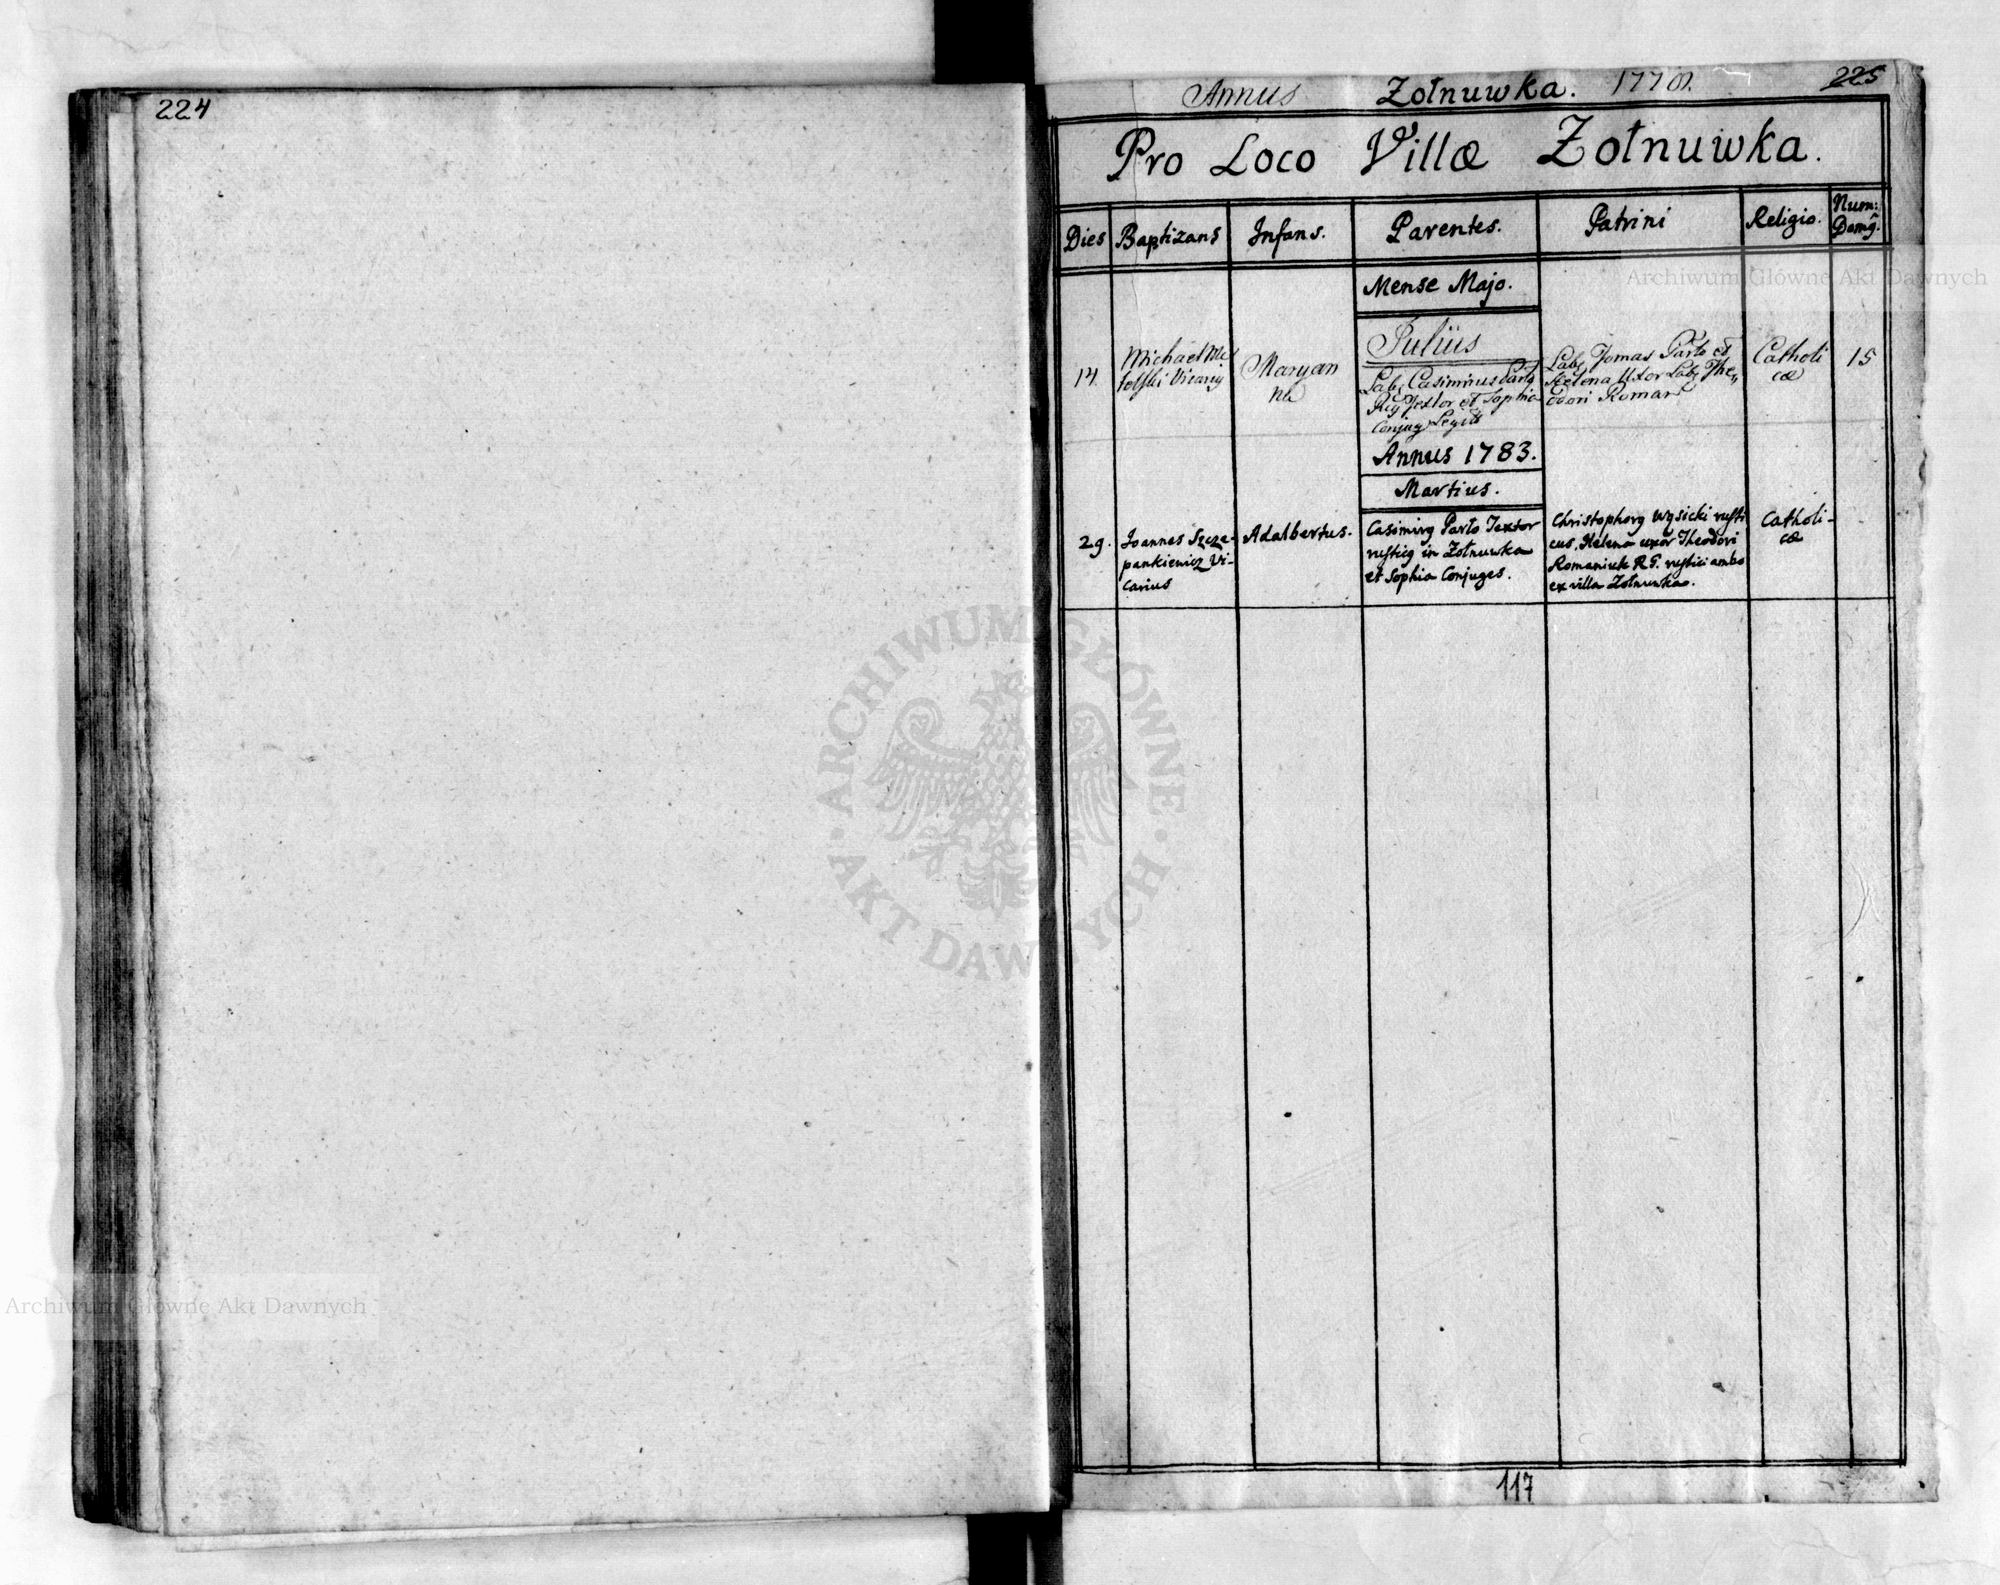 224
Annus Zołnuwka. 1778.
225
Pro Loco Villæ Zołnuwka.
Dies
Baptizans
Infans.
Parentes.
Patrini
Religio.
Num:
Domg.
Mense Majo.
Julius
14.
Michael
Vicarig
Maryan
na
Lab. Casimirus Parło
Rig Textor et Sophia
Conjug Legit
Lab. Tomas Parło et
Helena Uxor Lab. The„
odori Roman
Catholi
cæ
15
Annus 1783.
Martius.
29.
Joannes Szcze-
pankiewicz Vi-
carius
Adalbertus.
Casimirg Parło Textor
rusticg in Zołnuwka
et Sophia Conjuges.
Christophorg Wysicki rusti
cus, Helena uxor Theodori
Romaniuk R. G. rustici ambo
ex villa Zołnuwka.
Catholi-
cæ
117
Archiwum Główne Akt Dawnych
ARCHIWUM GŁÓWNE · AKT DAWNYCH ·
Archiwum Główne Akt Dawnych